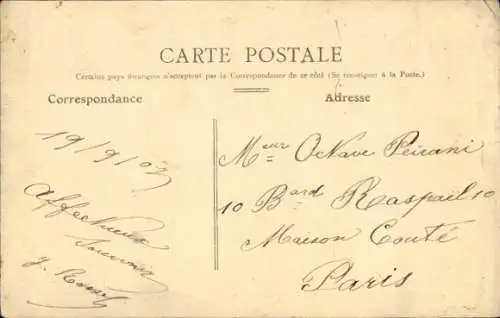 CARTE POSTALE
Certains pays étrangers n'acceptent pas la Correspondance de ce côté (Se renseigner à la Poste.)
Correspondance
Adresse
19/9/07
Affectueux
Souvenir
Mr Octave Peirani
10 Bard Raspail 10
Maison Couté
Paris